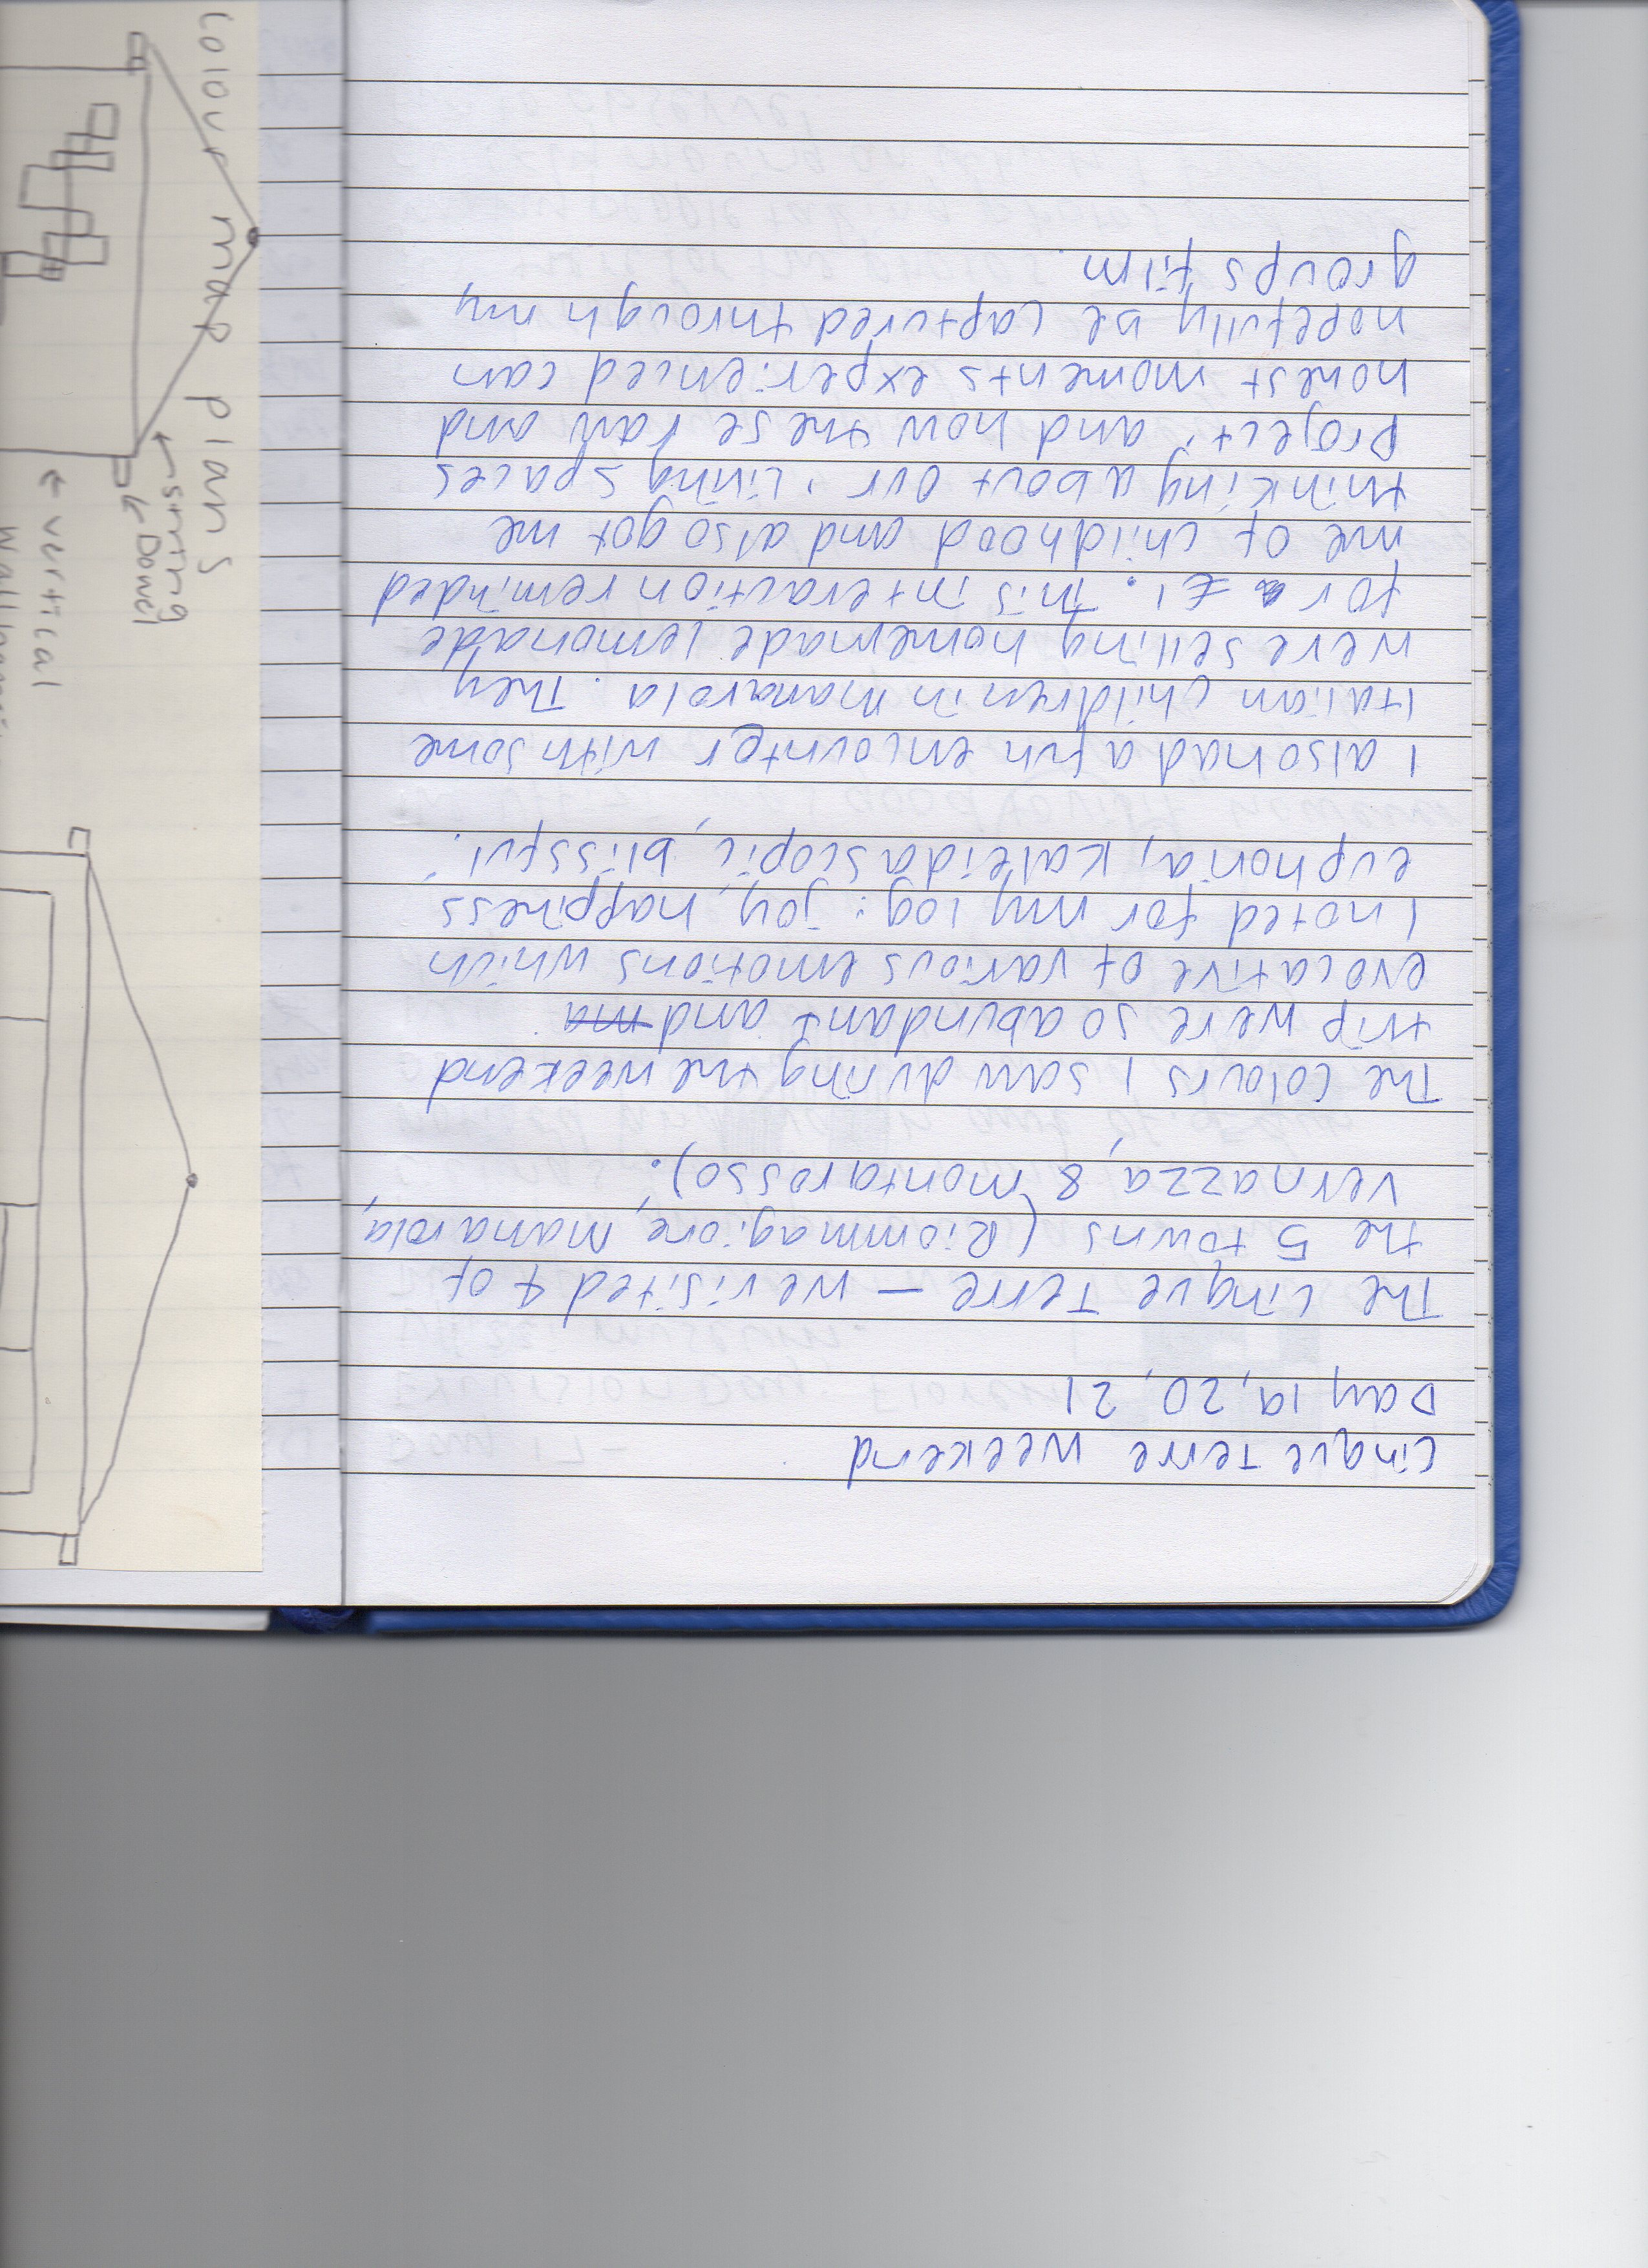 Cinque Terre weekend
Day 19, 20, 21
The Cinque Terre - we visited 4 of
the 5 towns (Riommagiore, Manarola,
Vernazza, & montarosso).
The colours I saw during the weekend
trip were so abundant and ma
evocative of various emotions which
I noted for my log: joy, happiness
euphoria, kaleidascopic, blissful.
I also had a fun encounter with some
Italian children in manarola. They
were selling homemade lemonade
for a £1. This interaction reminded
me of childhood and also got me
thinking about our 'Living spaces
project' and how these raw and
honest moments experienced can
hopefully be captured through my
groups film.
colour map plans
string
Dowel
vertical